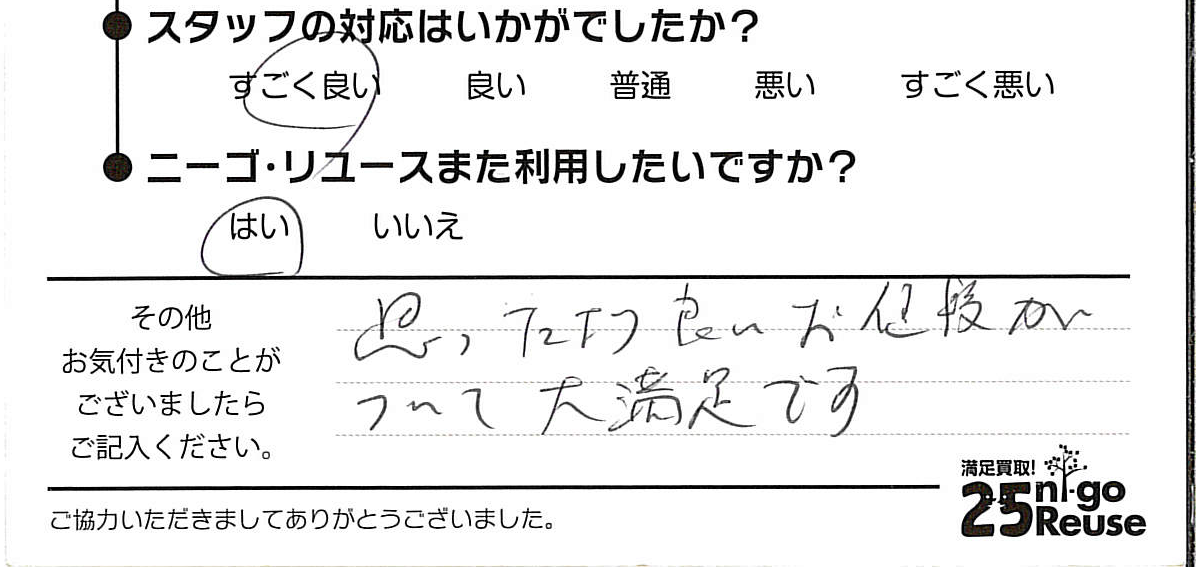 ●スタッフの対応はいかがでしたか?
すごく良い 良い 普通 悪い すごく悪い
●ニーゴ・リユースまた利用したいですか?
はい いいえ
その他
お気付きのことが
ございましたら
ご記入ください。
思ったより良いお値段が
ついて大満足です
満足買取!
25 ni-go
Reuse
ご協力いただきましてありがとうございました。